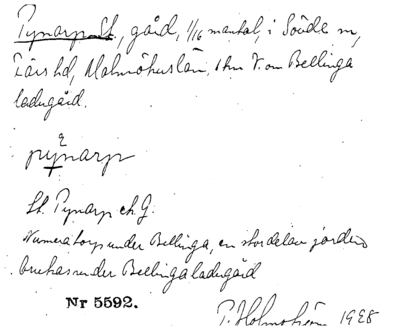 Pynarp St., gård, 1/16 mantal, i Sövde sn,
Färs hd, Malmöhus län, 1 km V. om Bellinga
ladugård.
pynarp
St. Pynarp ch. G.
Numera torp under Bellinga, en stor del av jorden
brukas under Bellinga ladugård
Nr 5592.
P. Holmström 1928